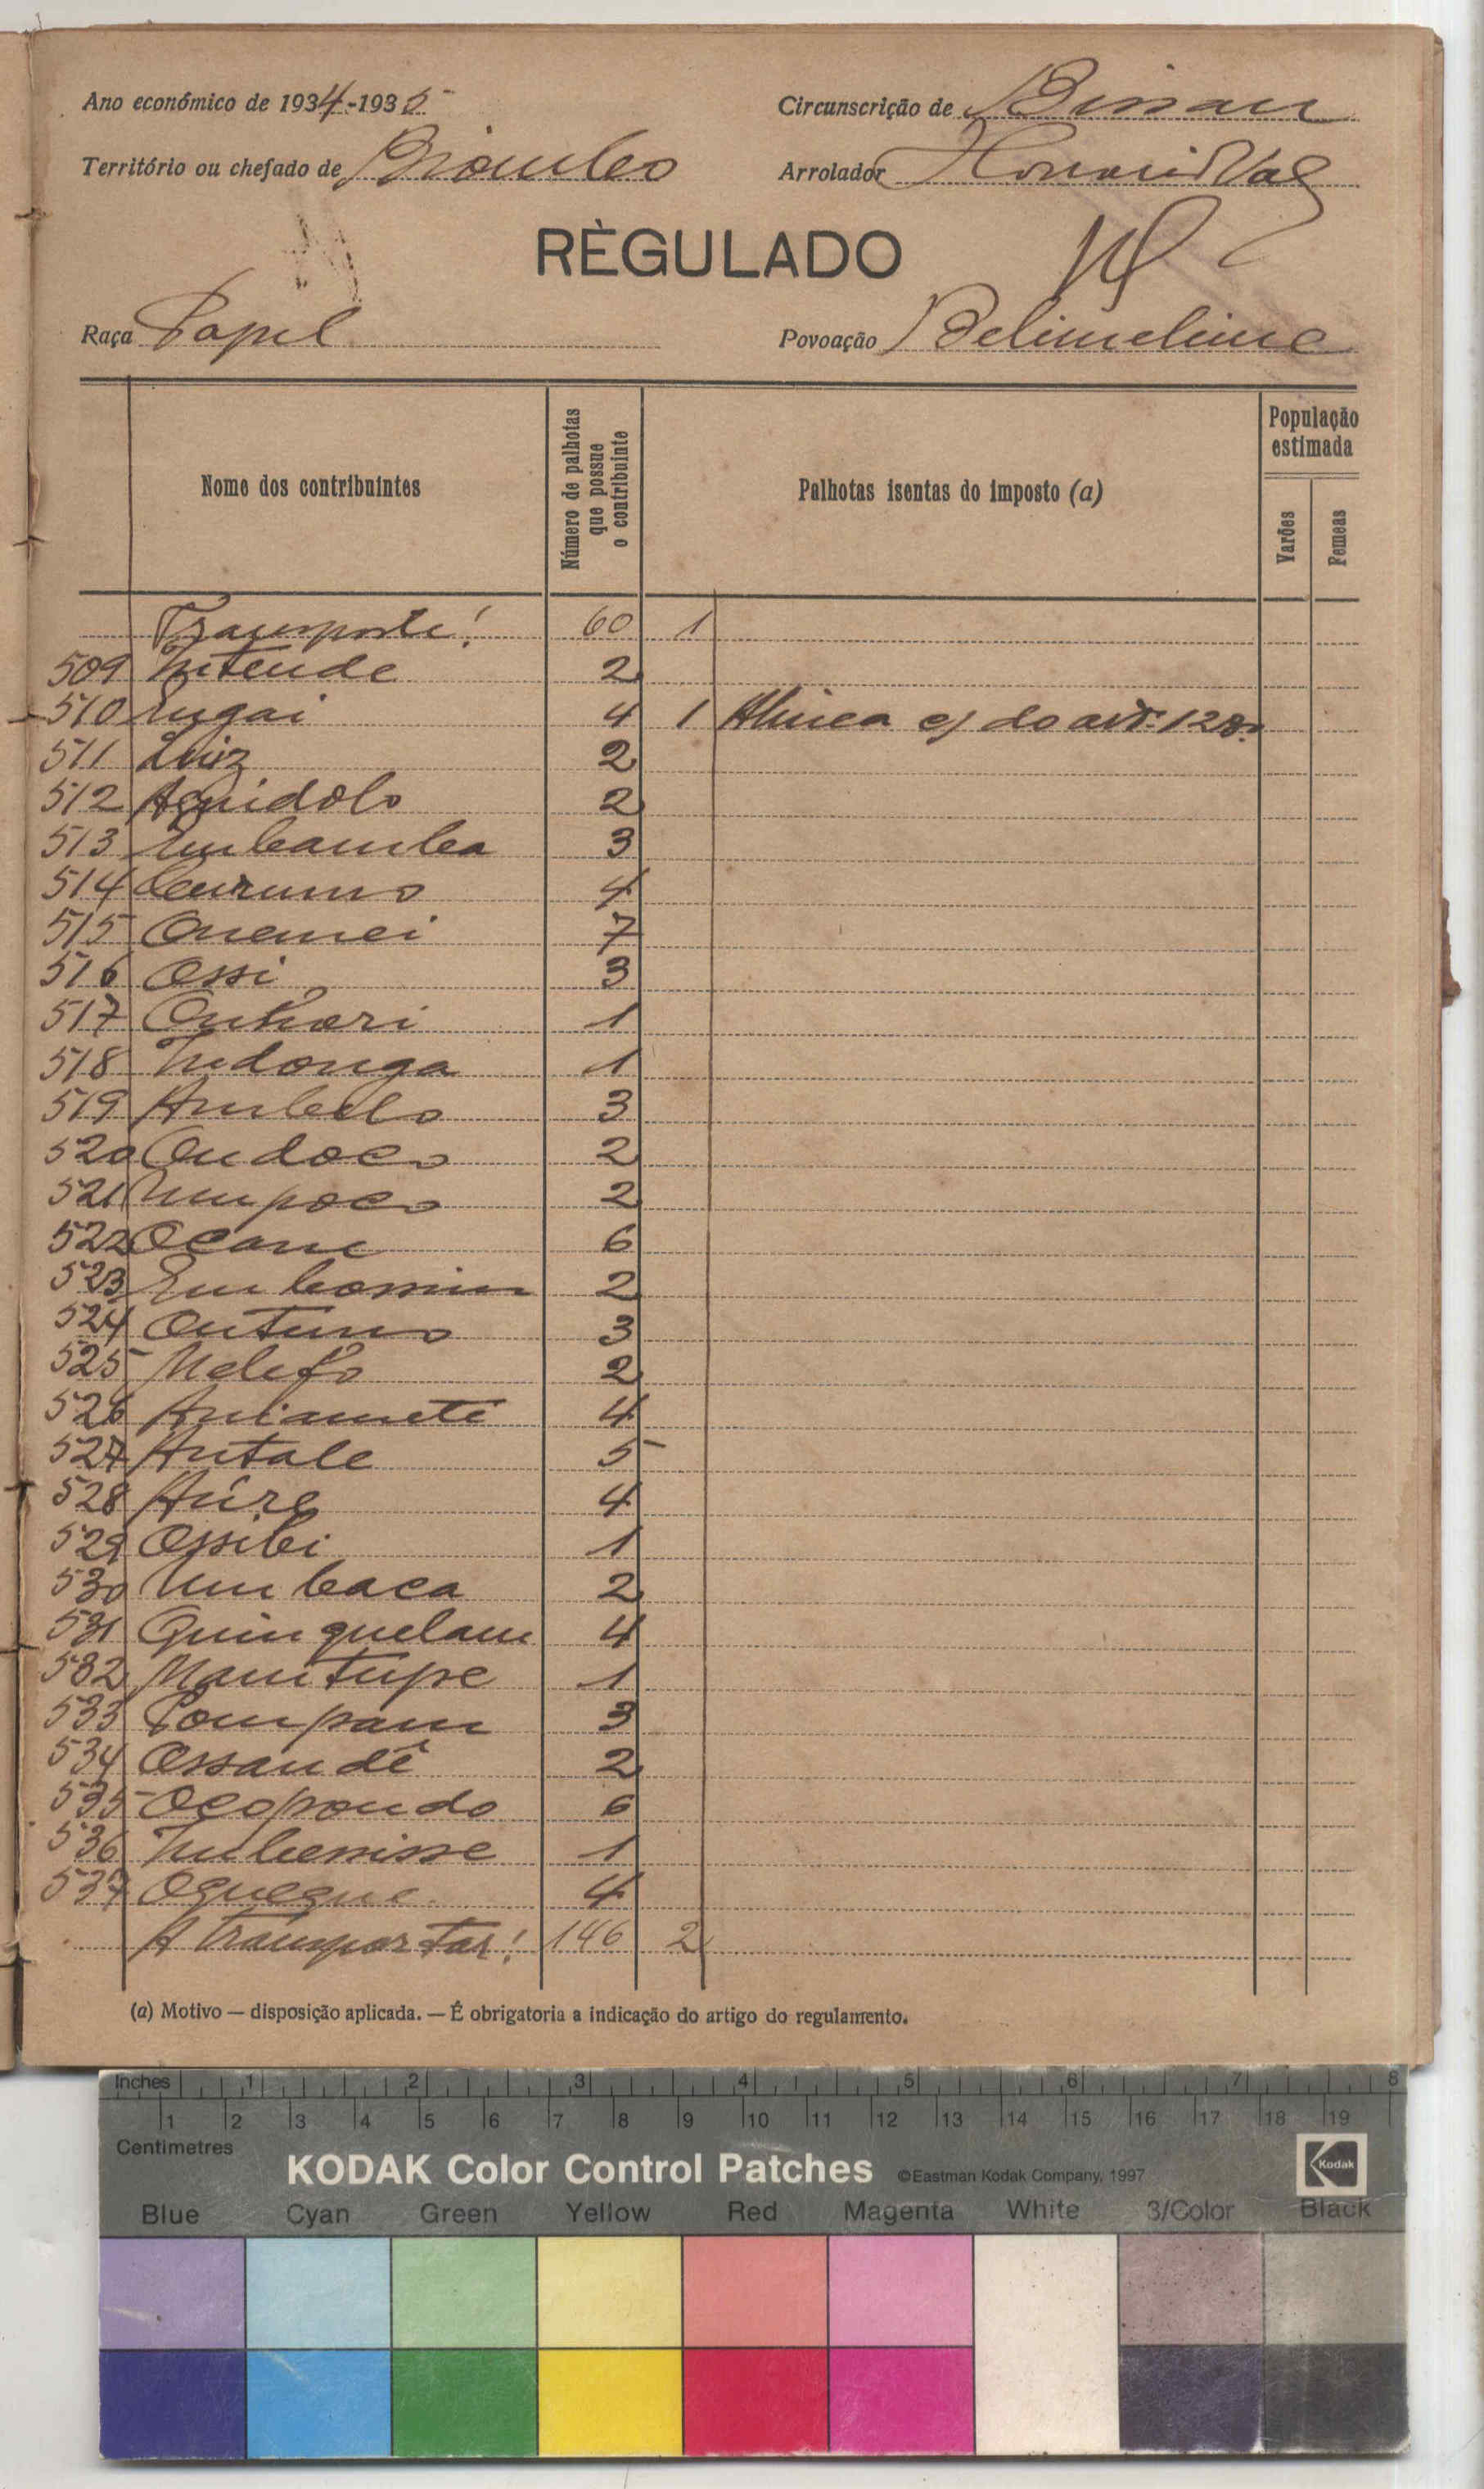 Ano económico de 1934-1935
Circunscrição de Bissau
Território ou chefado de Biombo
Arrolador
RÈGULADO
Raça Papel
Povoação Belimelime
Nome dos contribuintes
Número de palhotas que possue o contribuinte
Palhotas isentas do imposto (a)
População estimada
Varões
Femeas
Transporte! 60 1
509 Intende 2
510 Ingai 4 1 Alinea c) do art. 128º
511 Luiz 2
512 Aguidolo 2
513 Imbamba 3
514 4
515 Onemei 7
516 Ossi 3
517 Onhori 1
518 Indonga 1
519 Ambelo 3
520 Ondoco 2
521 Umpoco 2
522 Ocame 6
523 2
524 Ontumo 3
525 2
526 4
527 Antale 5
528 4
529 Ossibi 1
530 Umbaca 2
531 Quinquelam 4
532 Mantupe 1
533 Pompam 3
534 Ossandê 2
535 Ocopondo 6
536 1
537 Oqueque 4
A transportar! 146 2
(a) Motivo — disposição aplicada. — É obrigatoria a indicação do artigo do regulamento.
Inches 1 2 3 4 5 6 7 8
1 2 3 4 5 6 7 8 9 10 11 12 13 14 15 16 17 18 19
Centimetres
KODAK Color Control Patches ©Eastman Kodak Company, 1997 Kodak
Blue Cyan Green Yellow Red Magenta White 3/Color Black